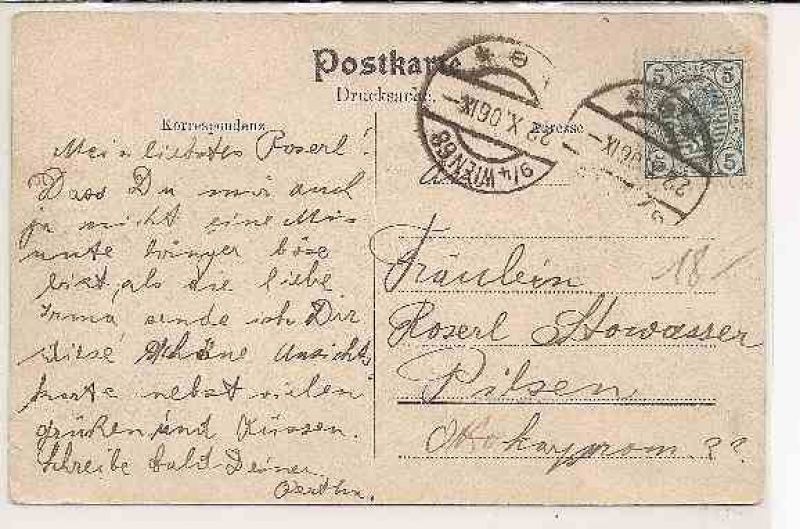 Postkarte
Drucksache.
Korrespondenz
Adresse
5 5
5 5
9/4 WIEN 68
22 X. 06 IX
Mein liebstes Roserl!
Dass Du mir auch
ja nicht eine Min
ute länger böse
bist, als die liebe
Irma sende ich Dir
diese schöne Ansicht
karte nebst vielen
grüßen und Küssen.
Schreibe bald Deiner
Bertha.
An
Fräulein
Roserl Stowasser
Pilsen
18/
??